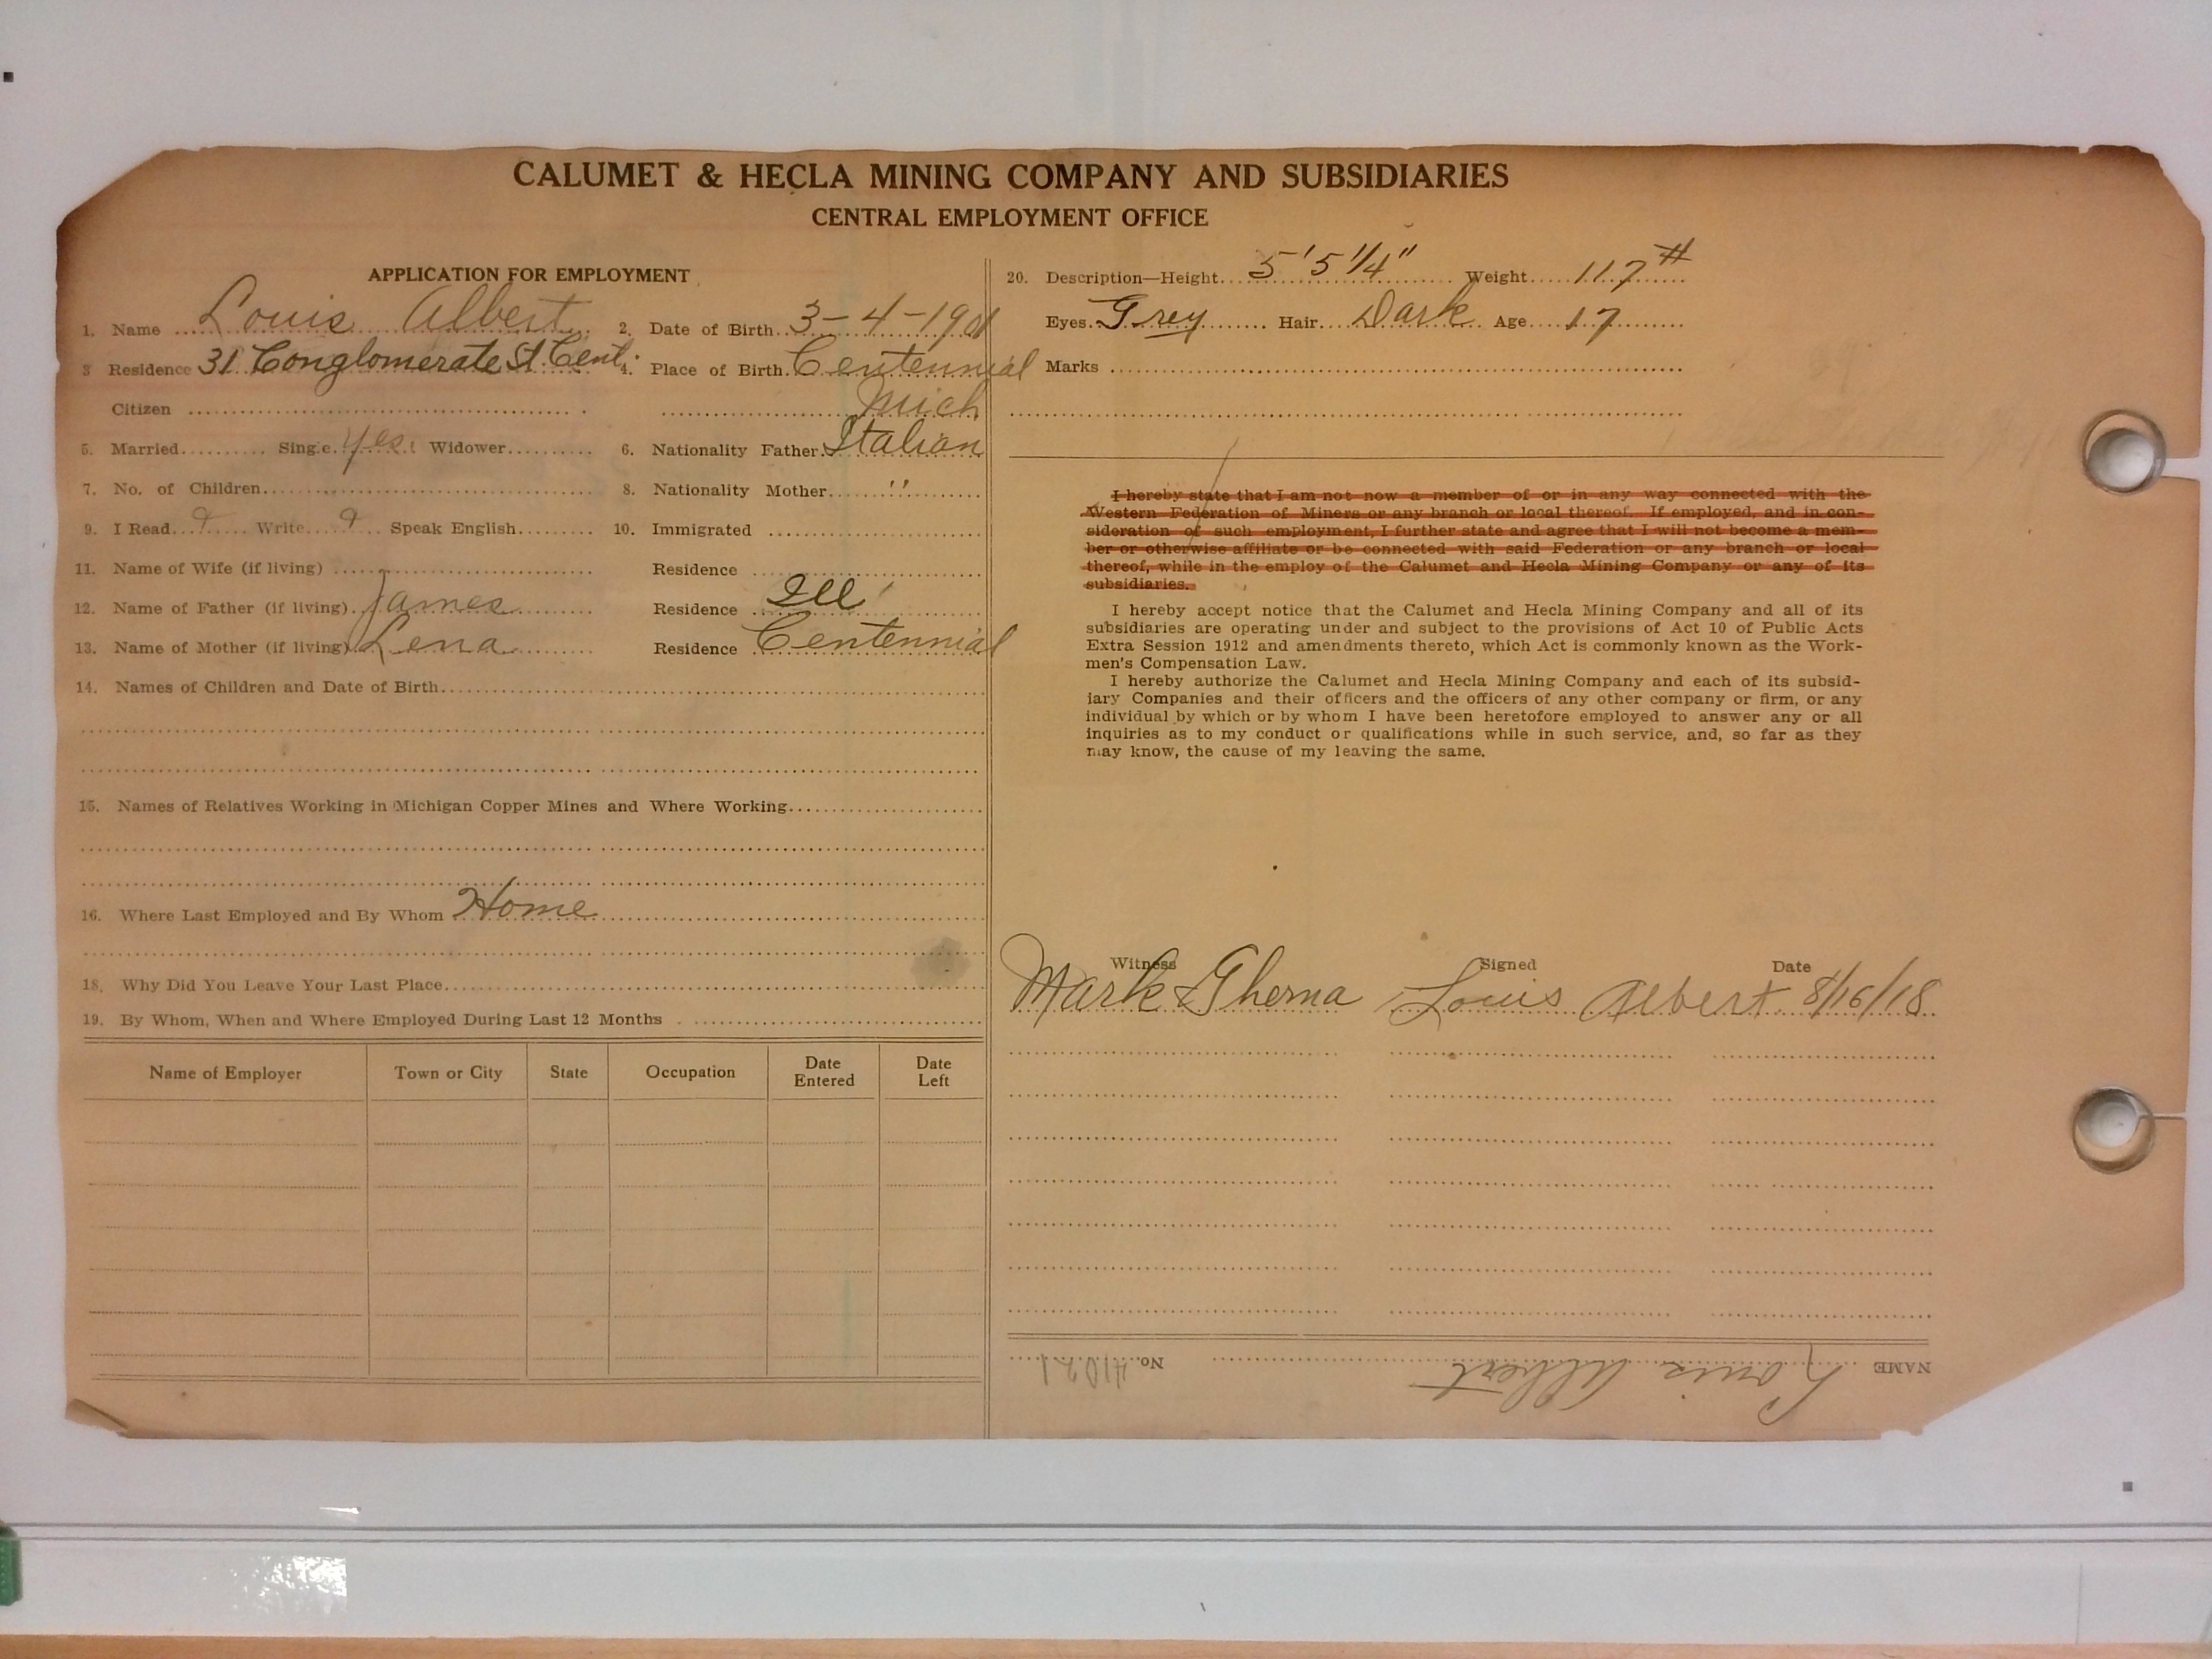 CALUMET & HECLA MINING COMPANY AND SUBSIDIARIES
CENTRAL EMPLOYMENT OFFICE
APPLICATION FOR EMPLOYMENT
1. Name Louis Albert 2. Date of Birth 3-4-1901
3 Residence 31 Conglomerate St. Cent. 4. Place of Birth Centennial
Citizen Mich
5. Married Single yes Widower 6. Nationality Father Italian
7. No. of Children 8. Nationality Mother "
9. I Read Write Speak English 10. Immigrated
11. Name of Wife (if living) Residence
12. Name of Father (if living) James Residence Ill
13. Name of Mother (if living) Lena Residence Centennial
14. Names of Children and Date of Birth
15. Names of Relatives Working in Michigan Copper Mines and Where Working
16. Where Last Employed and By Whom Home
18. Why Did You Leave Your Last Place
19. By Whom, When and Where Employed During Last 12 Months
Name of Employer Town or City State Occupation Date Entered Date Left
20. Description—Height 5' 5 1/4" Weight 117 #
Eyes Grey Hair Dark Age 17
Marks
I hereby state that I am not now a member of or in any way connected with the
Western Federation of Miners or any branch or local thereof. If employed, and in con-
sideration of such employment, I further state and agree that I will not become a mem-
ber or otherwise affiliate or be connected with said Federation or any branch or local
thereof, while in the employ of the Calumet and Hecla Mining Company or any of its
subsidiaries.
I hereby accept notice that the Calumet and Hecla Mining Company and all of its
subsidiaries are operating under and subject to the provisions of Act 10 of Public Acts
Extra Session 1912 and amendments thereto, which Act is commonly known as the Work-
men's Compensation Law.
I hereby authorize the Calumet and Hecla Mining Company and each of its subsid-
iary Companies and their officers and the officers of any other company or firm, or any
individual by which or by whom I have been heretofore employed to answer any or all
inquiries as to my conduct or qualifications while in such service, and, so far as they
may know, the cause of my leaving the same.
Witness Signed Date
Mark Ghema Louis Albert 8/16/18
NAME Louis Albert No. 41021